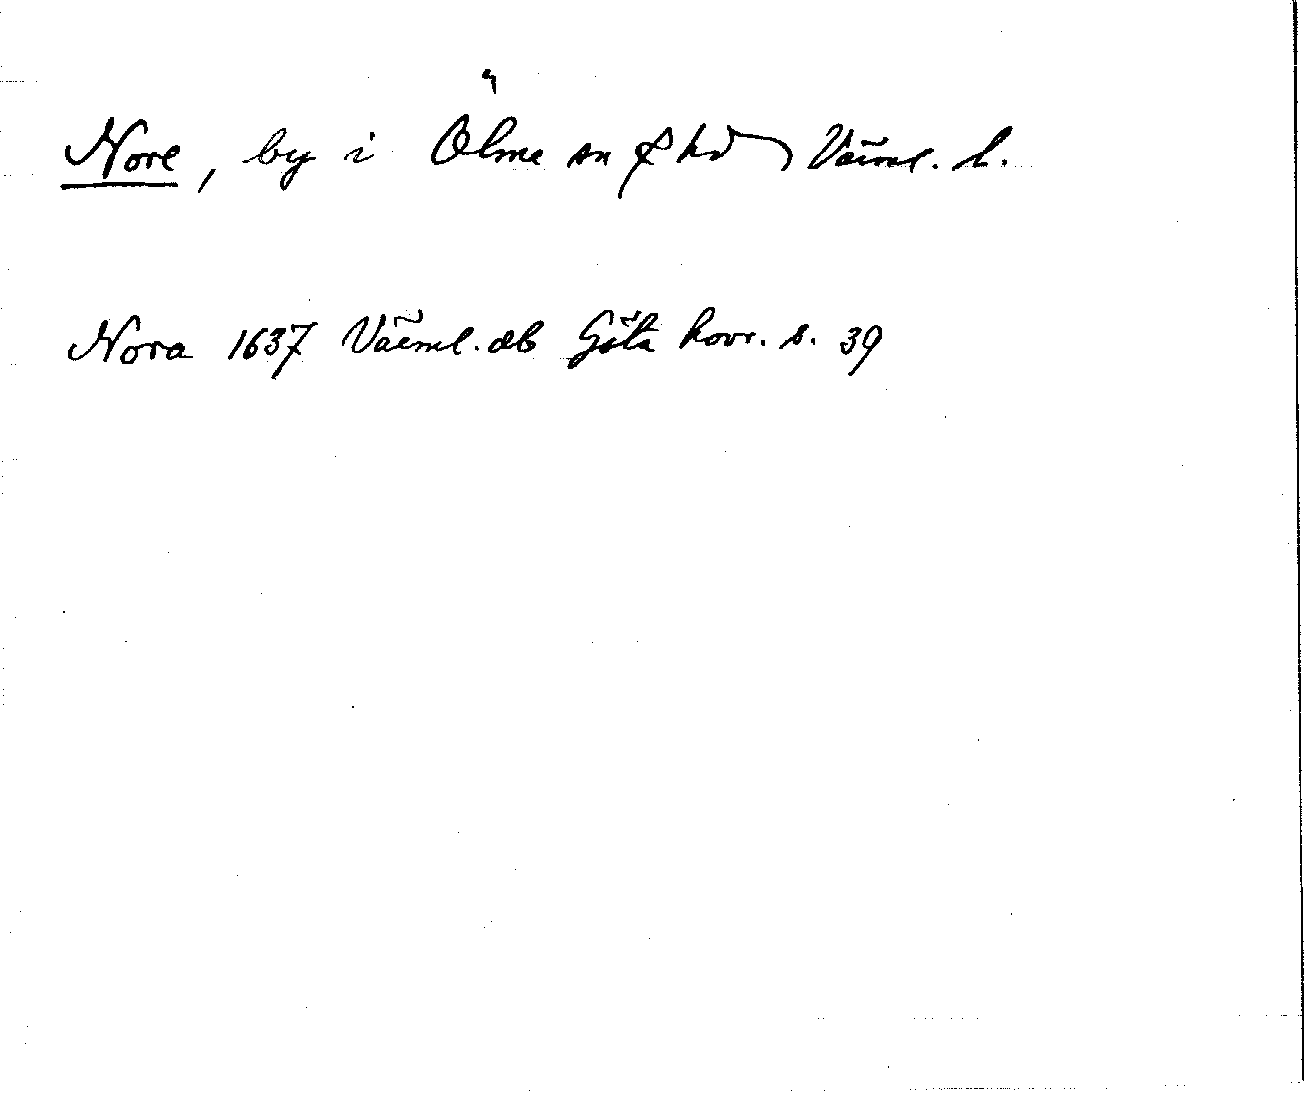 Nore, by i Ölme sn & hd, Värml. l.
Nora 1637 Värml. db Göta hovr. s. 39